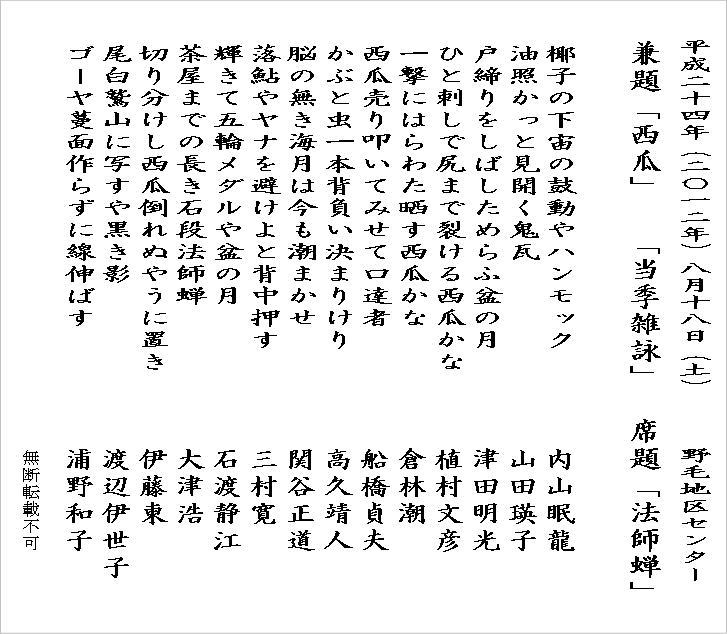 平成二十四年（二〇一二年）八月十八日（土） 野毛地区センター
兼題「西瓜」 「当季雑詠」 席題「法師蝉」
椰子の下宙の鼓動やハンモック 内山眠龍
油照かっと見開く鬼瓦 山田瑛子
戸締りをしばしためらふ盆の月 津田明光
ひと刺しで尻まで裂ける西瓜かな 植村文彦
一撃にはらわた晒す西瓜かな 倉林潮
西瓜売り叩いてみせて口達者 船橋貞夫
かぶと虫一本背負い決まりけり 高久靖人
脳の無き海月は今も潮まかせ 関谷正道
落鮎やヤナを避けよと背中押す 三村寛
輝きて五輪メダルや盆の月 石渡静江
茶屋までの長き石段法師蝉 大津浩
切り分けし西瓜倒れぬやうに置き 伊藤東
尾白鷲山に写すや黒き影 渡辺伊世子
ゴーヤ蔓面作らずに線伸ばす 浦野和子
無断転載不可